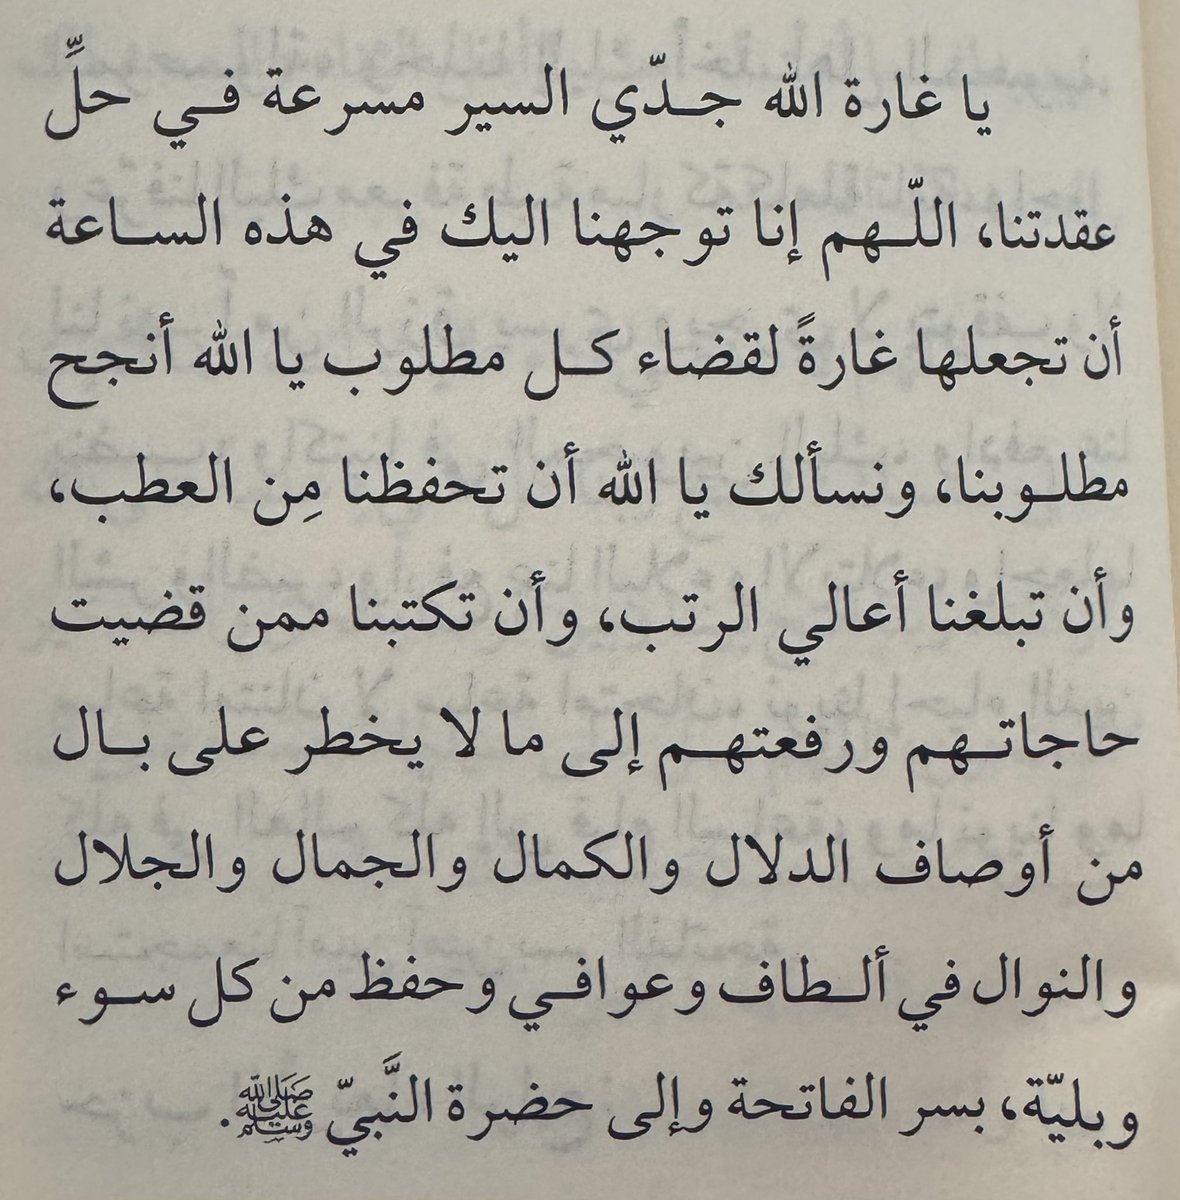 يا غارة الله جدّي السير مسرعة في حلِّ
عقدتنا، اللّهم إنا توجهنا اليك في هذه الساعة
أن تجعلها غارةً لقضاء كل مطلوب يا الله أنجح
مطلوبنا، ونسألك يا الله أن تحفظنا مِن العطب،
وأن تبلغنا أعالي الرتب، وأن تكتبنا ممن قضيت
حاجاتهم ورفعتهم إلى ما لا يخطر على بال
من أوصاف الدلال والكمال والجمال والجلال
والنوال في ألطاف وعوافي وحفظ من كل سوء
وبليّة، بسر الفاتحة وإلى حضرة النَّبيّ ﷺ.